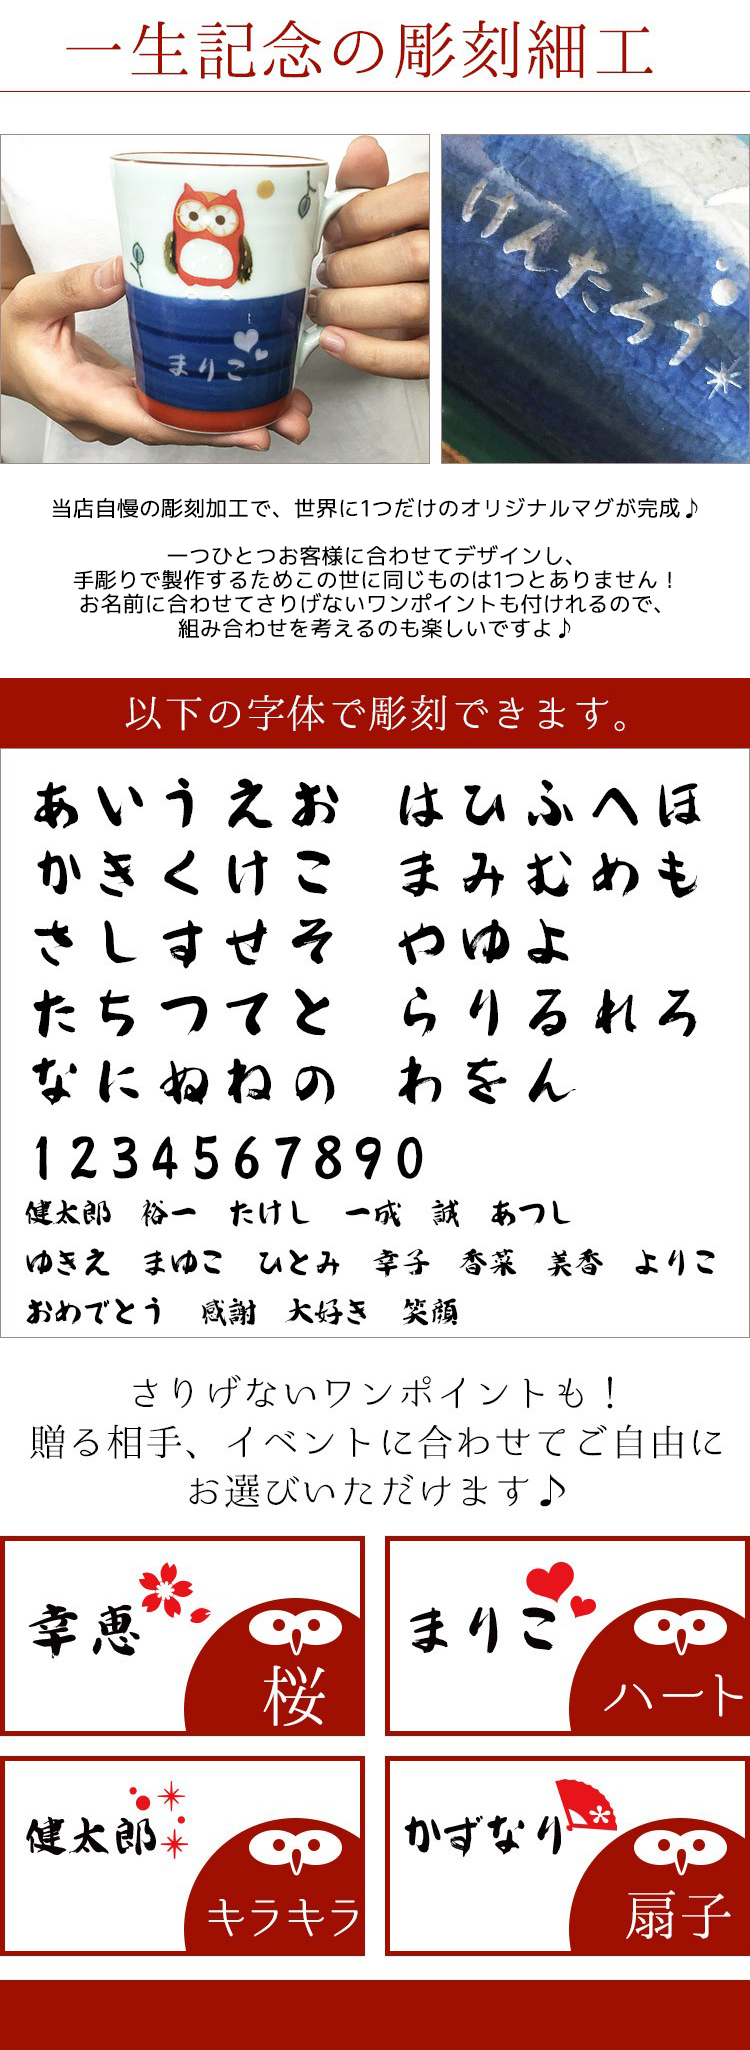 一生記念の彫刻細工
まりこ
けんたろう
当店自慢の彫刻加工で、世界に1つだけのオリジナルマグが完成♪
一つひとつお客様に合わせてデザインし、
手彫りで製作するためこの世に同じものは1つとありません！
お名前に合わせてさりげないワンポイントも付けれるので、
組み合わせを考えるのも楽しいですよ♪
以下の字体で彫刻できます。
あいうえお はひふへほ
かきくけこ まみむめも
さしすせそ やゆよ
たちつてと らりるれろ
なにぬねの わをん
1234567890
健太郎 裕一 たけし 一成 誠 あつし
ゆきえ まゆこ ひとみ 幸子 香菜 美香 よりこ
おめでとう 感謝 大好き 笑顔
さりげないワンポイントも！
贈る相手、イベントに合わせてご自由に
お選びいただけます♪
幸恵
桜
まりこ
ハート
健太郎
キラキラ
かずなり
扇子